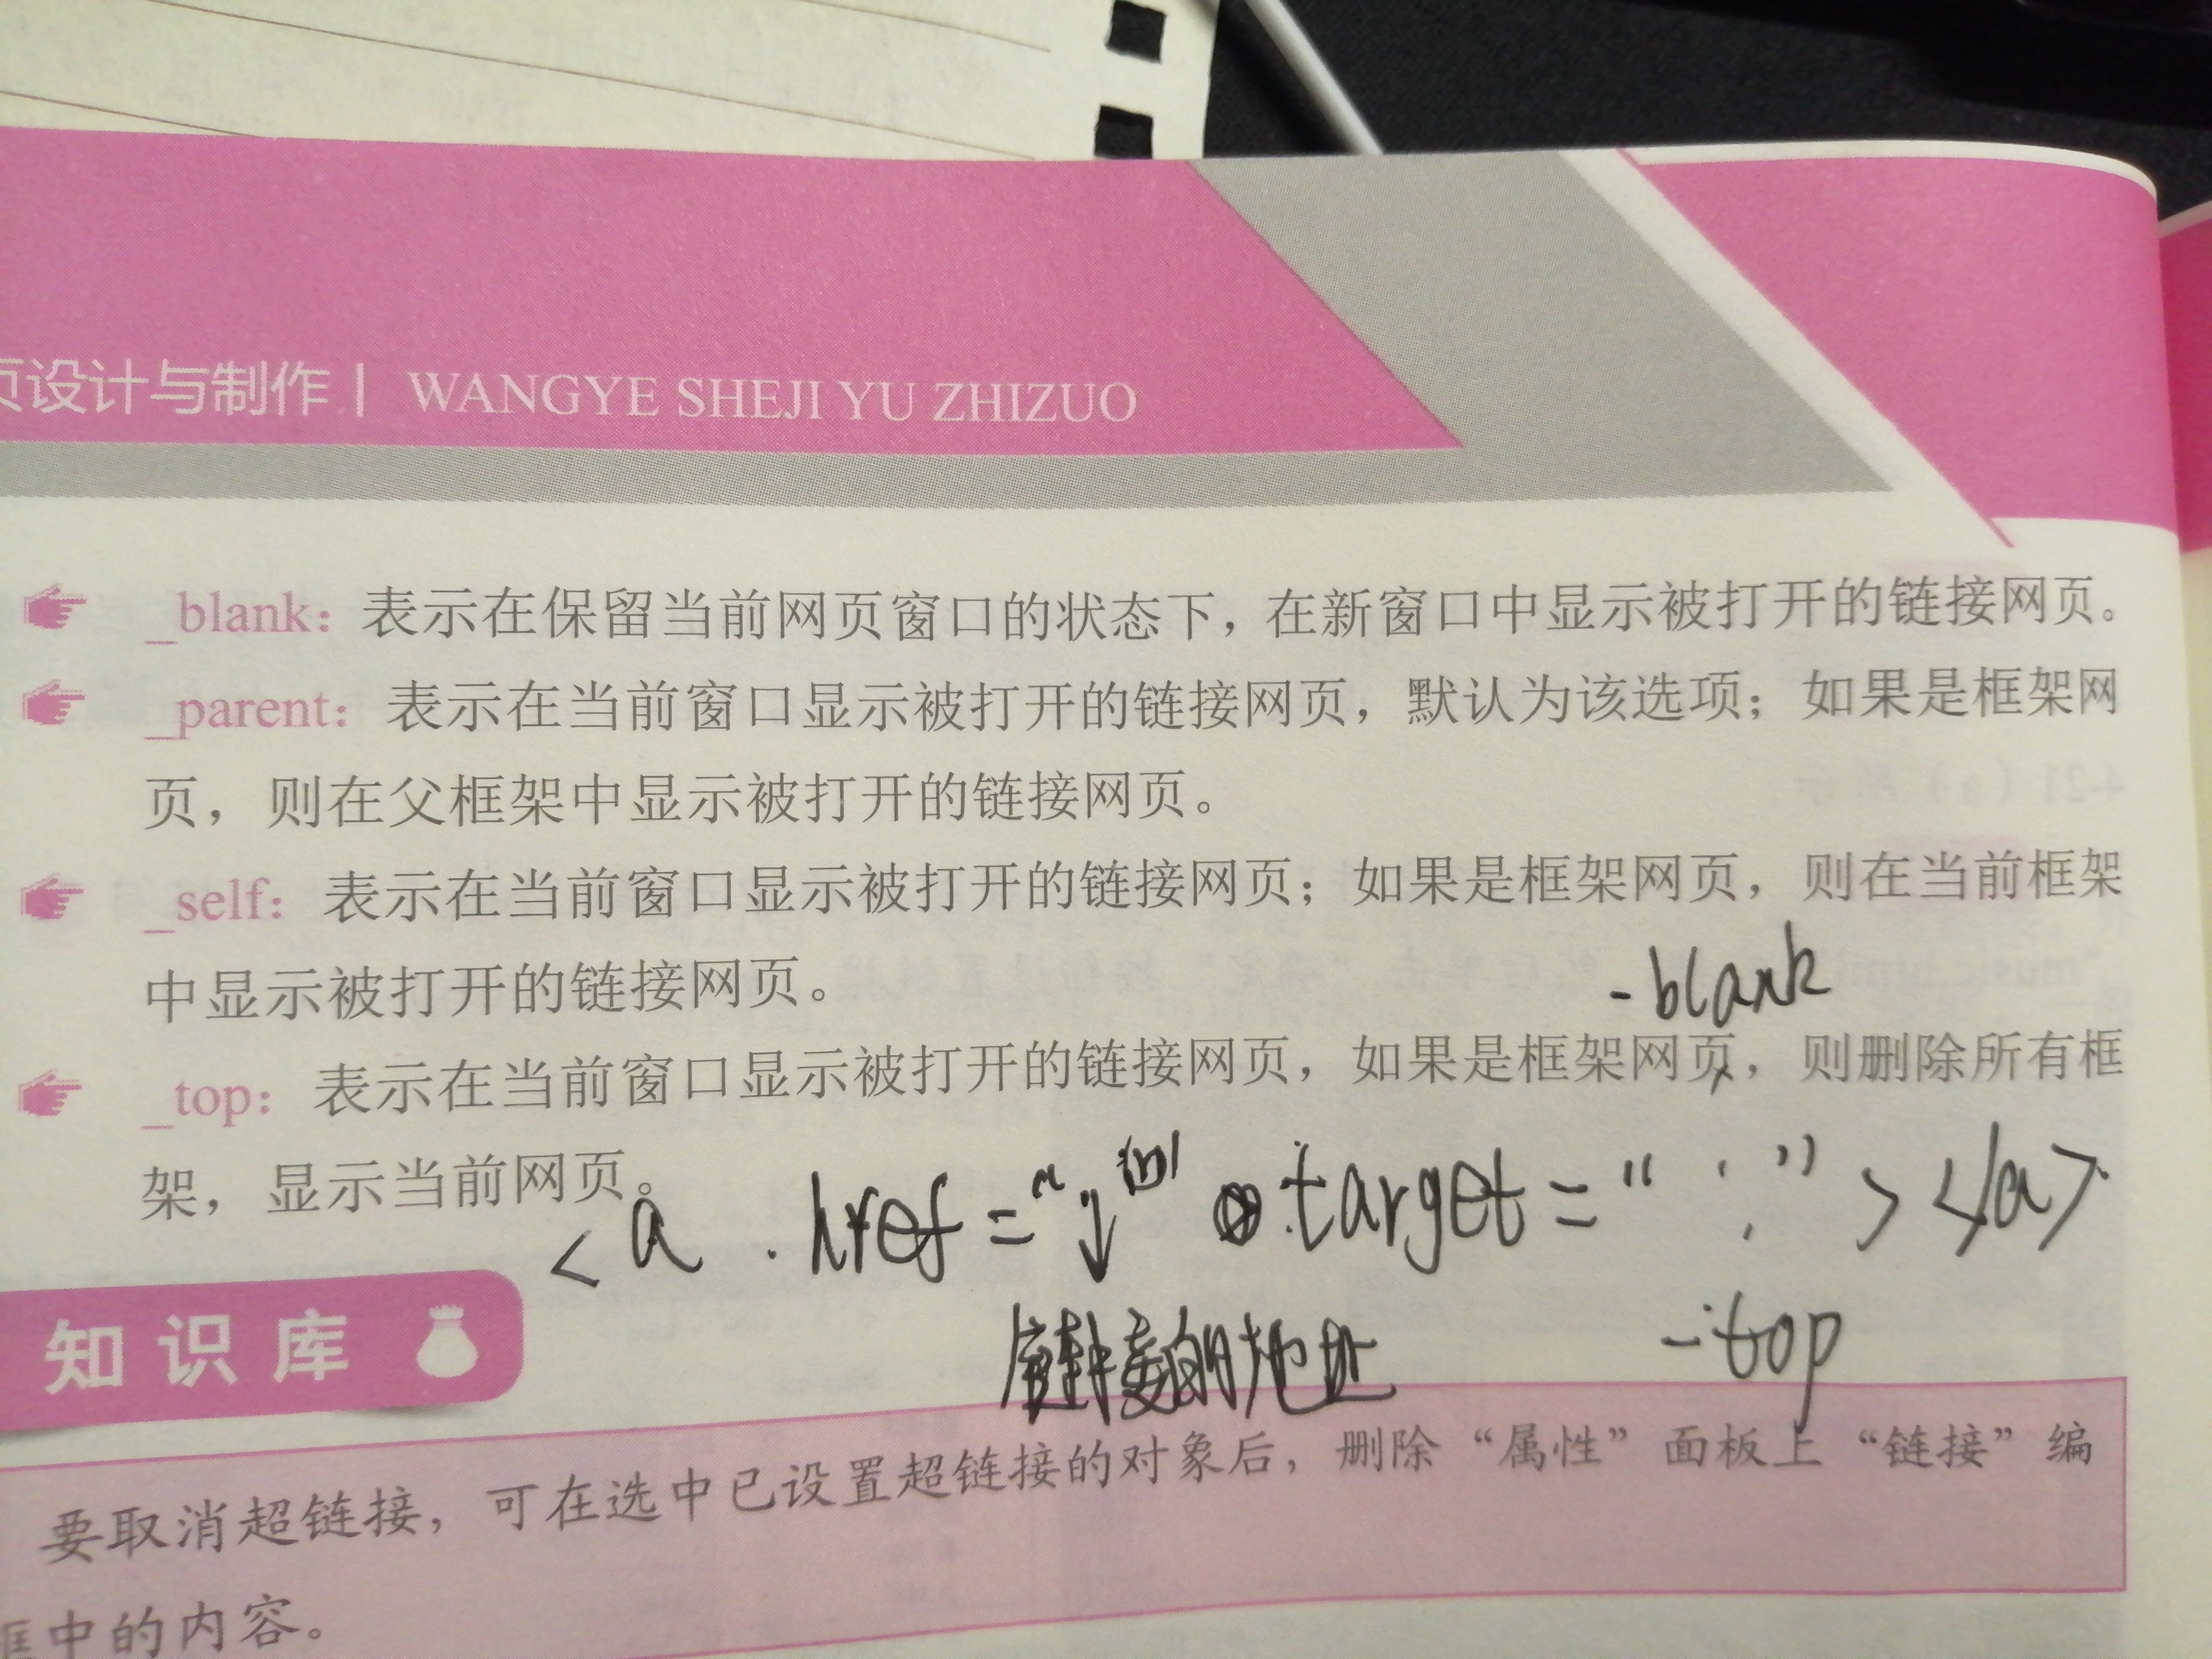 页设计与制作 | WANGYE SHEJI YU ZHIZUO
_blank：表示在保留当前网页窗口的状态下，在新窗口中显示被打开的链接网页。
_parent：表示在当前窗口显示被打开的链接网页，默认为该选项；如果是框架网
页，则在父框架中显示被打开的链接网页。
_self：表示在当前窗口显示被打开的链接网页；如果是框架网页，则在当前框架
中显示被打开的链接网页。
-blank
_top：表示在当前窗口显示被打开的链接网页，如果是框架网页，则删除所有框
架，显示当前网页。
<a href="↓" target=" ⋮ "></a>
链接的地址
-top
知识库
要取消超链接，可在选中已设置超链接的对象后，删除“属性”面板上“链接”编
框中的内容。